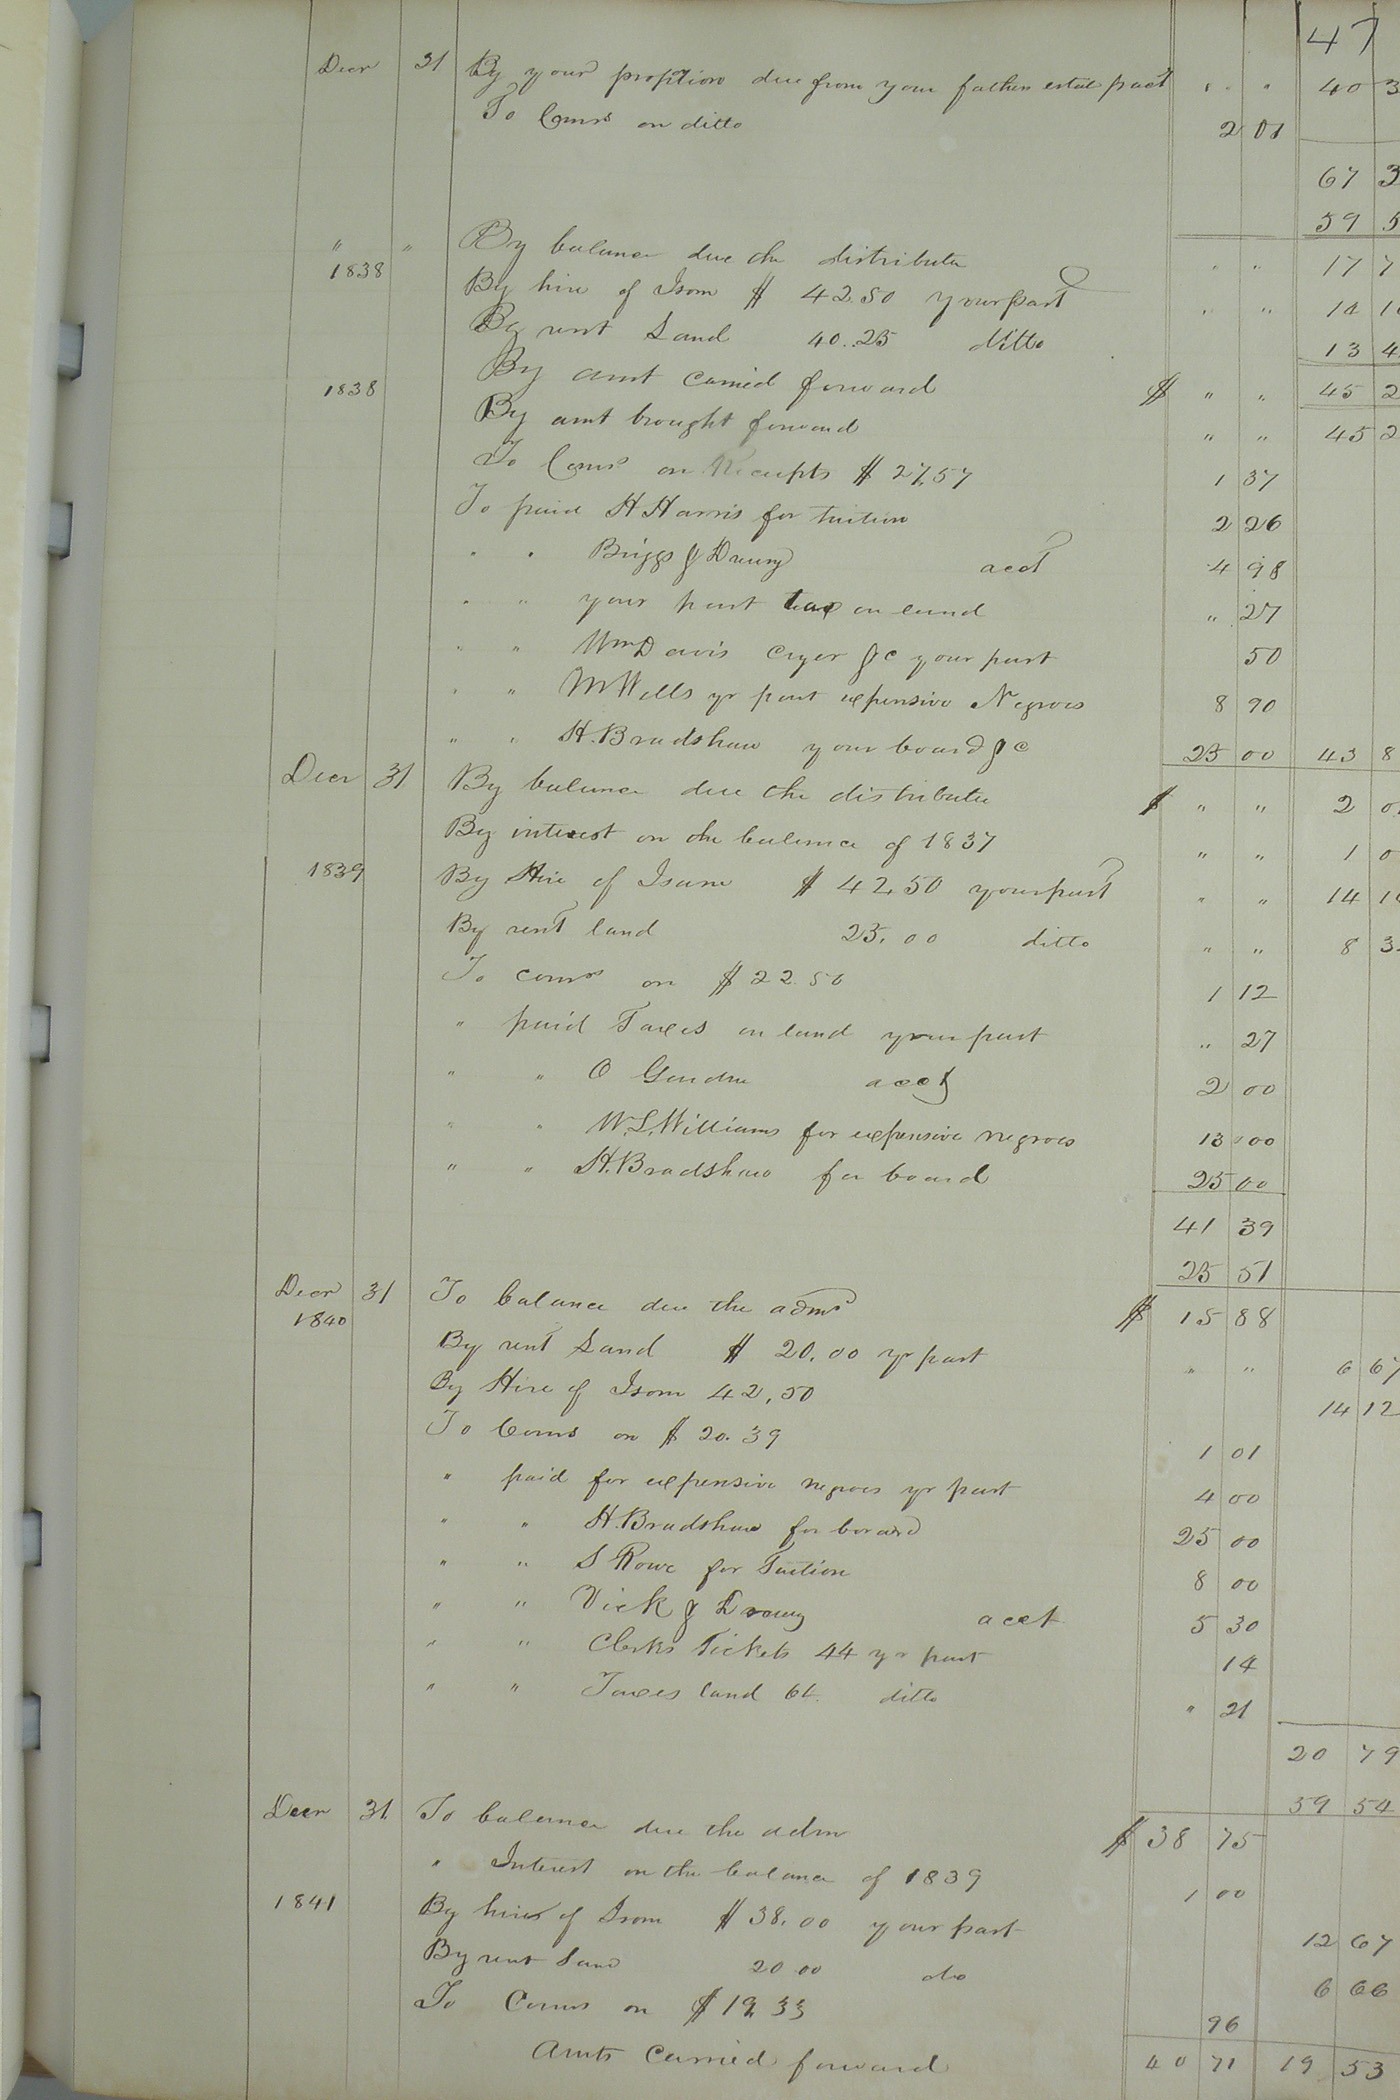 47
Decr 31 By your proption due from your fathers estate part " " 40 3
To Coms on ditto 2 01
67 3
59 5
" " By balance due the distributee " " 17 7
1838 By hire of Isom $ 42.50 your part " " 14 1
By rent Land 40..25 ditto 13 4
By amt carried forward $ " " 45 2
1838 By amt brought forward " " 45 2
To Coms on Receipts $ 27,57 1 37
To paid H Harris for tuition 2 26
" " Briggs & Drewry acct 4 98
" " your part tax on land " 27
" " Wm Davis Cryer &c your part 50
" " M Wells yr part expensive Negroes 8 90
" " H. Bradshaw your board &c 25 00 43 8
Decr 31 By balance due the distributee $ " " 2 0
By interest on the balance of 1837 " " 1 0
1839 By Hire of Isom $ 42,50 your part " " 14 1
By rent land 25.00 ditto " " 8 3
To coms on $ 22.50 1 12
" paid Taxes on land your part " 27
" " O acct 2 00
" " W. L. Williams for expensive negroes 13 00
" " H. Bradshaw for board 25 00
41 39
25 51
Decr 31 To balance due the adms $ 15 88
1840 By rent Land $ 20,00 yr part " " 6 67
By Hire of Isom 42,50 14 12
To Coms on $ 20.39 1 01
" paid for expensive negroes yr part 4 00
" " H. Bradshaw for board 25 00
" " S Rowe for Tuition 8 00
" " Vick & Drewry acct 5 30
" " Clerks Tickets 44 yr part 14
" " Taxes land 64 ditto " 21
20 79
59 54
Decr 31 To balance due the adm $ 38 75
" Interest on the balance of 1839 1 00
1841 By hire of Isom $ 38.00 your part 12 67
By rent Land 20 00 do 6 66
To Coms on $ 19,33 96
Amts Carried forward 40 71 19 53